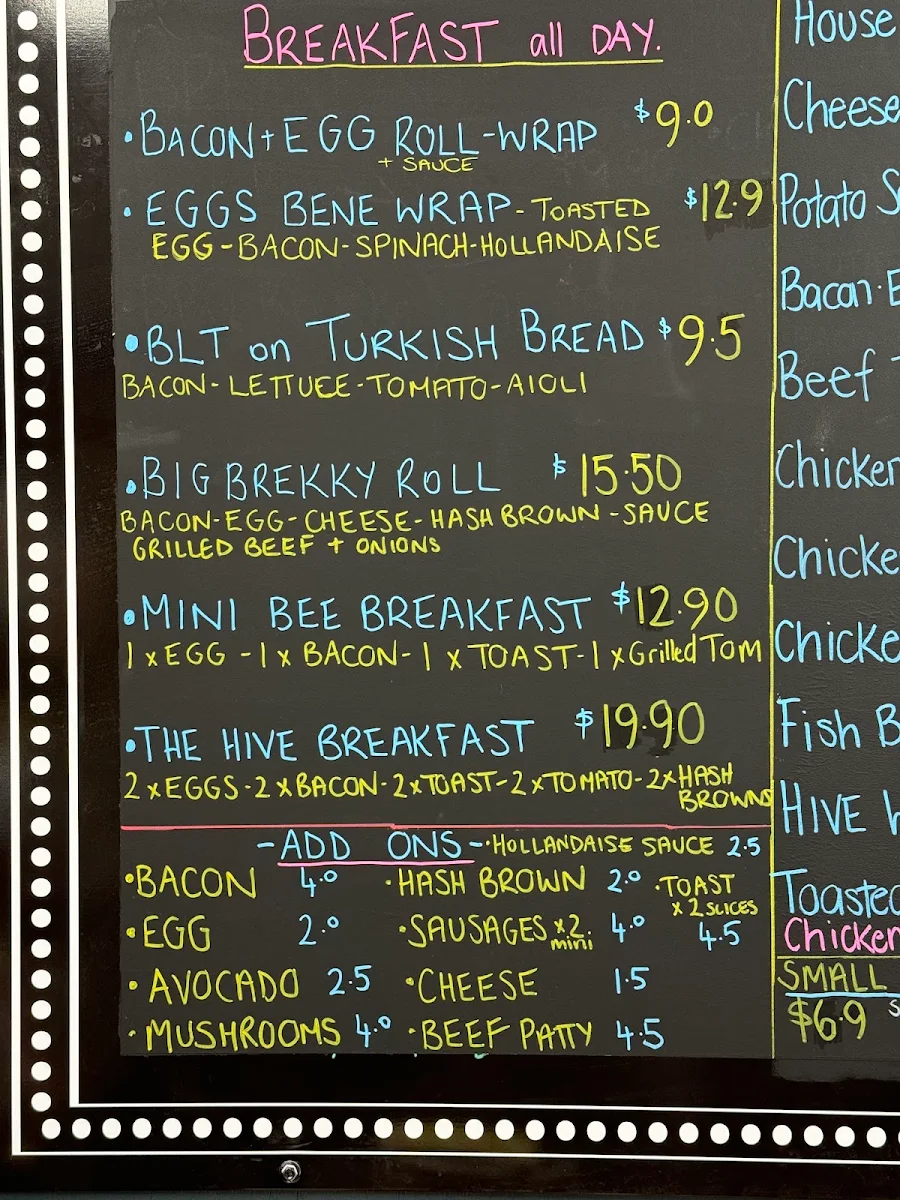 BREAKFAST all DAY.
• BACON + EGG ROLL - WRAP $9.0
+ SAUCE
• EGGS BENE WRAP - TOASTED $12.9
EGG - BACON - SPINACH - HOLLANDAISE
• BLT on TURKISH BREAD $9.5
BACON - LETTUCE - TOMATO - AIOLI
• BIG BREKKY ROLL $15.50
BACON - EGG - CHEESE - HASH BROWN - SAUCE
GRILLED BEEF + ONIONS
• MINI BEE BREAKFAST $12.90
1 x EGG - 1 x BACON - 1 x TOAST - 1 x Grilled TOM
• THE HIVE BREAKFAST $19.90
2 x EGGS - 2 x BACON - 2 x TOAST - 2 x TOMATO - 2 x HASH
BROWNS
- ADD ONS - • HOLLANDAISE SAUCE 2.5
• BACON 4.0 • HASH BROWN 2.0 • TOAST
x 2 SLICES
• EGG 2.0 • SAUSAGES x 2 mini 4.0 4.5
• AVOCADO 2.5 • CHEESE 1.5
• MUSHROOMS 4.0 • BEEF PATTY 4.5
House
Cheese
Potato
Bacon
Beef
Chicken
Chicke
Chicke
Fish
HIVE
Toasted
Chicken
SMALL
$6.9